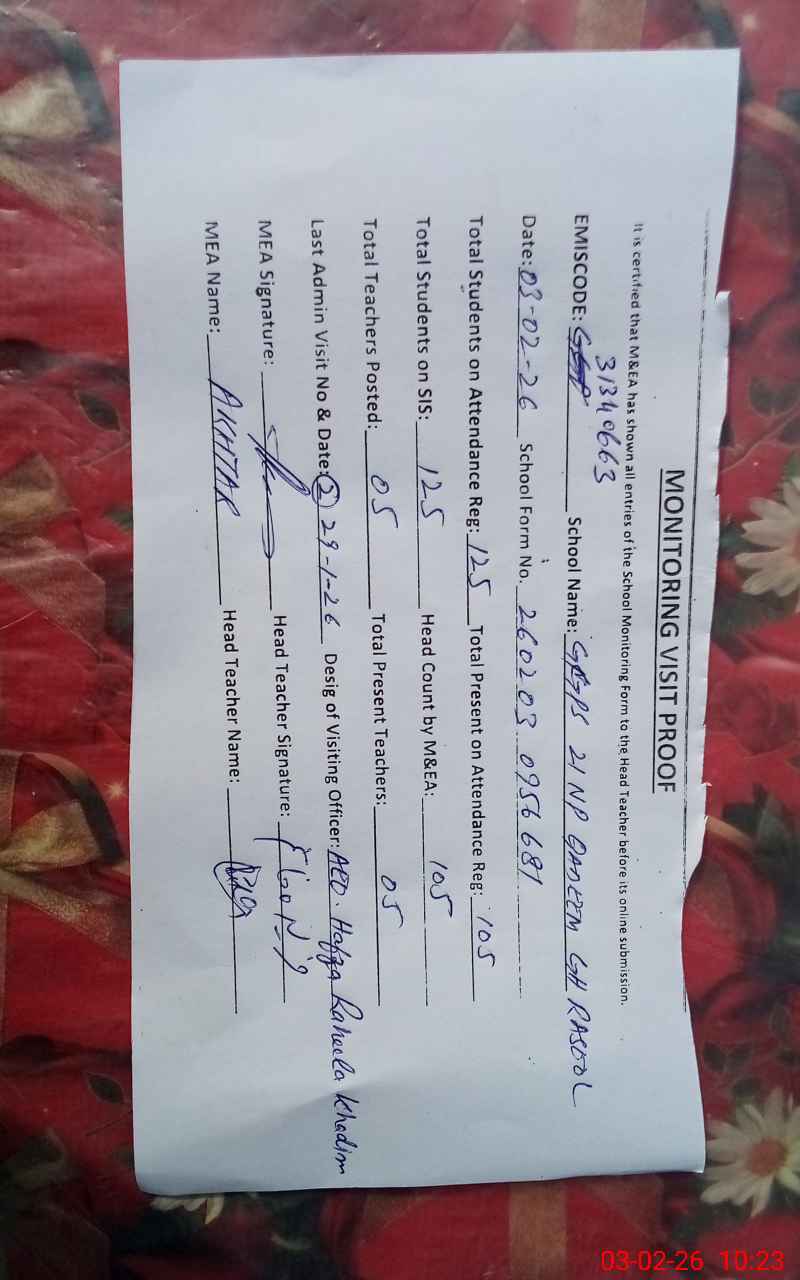 MONITORING VISIT PROOF
It is certified that M&EA has shown all entries of the School Monitoring Form to the Head Teacher before its online submission.
31340663
EMISCODE: School Name: GGPS 21 NP QADEEM GH RASOOL
Date: 03-02-26 School Form No. 260203 0956 681
Total Students on Attendance Reg: 125 Total Present on Attendance Reg: 105
Total Students on SIS: 125 Head Count by M&EA: 105
Total Teachers Posted: 05 Total Present Teachers: 05
Last Admin Visit No & Date: (2) 29-1-26 Desig of Visiting Officer: AEO. Hafza Raheela Khadim
MEA Signature: Head Teacher Signature:
MEA Name: AKHTAR Head Teacher Name:
03-02-26 10:23